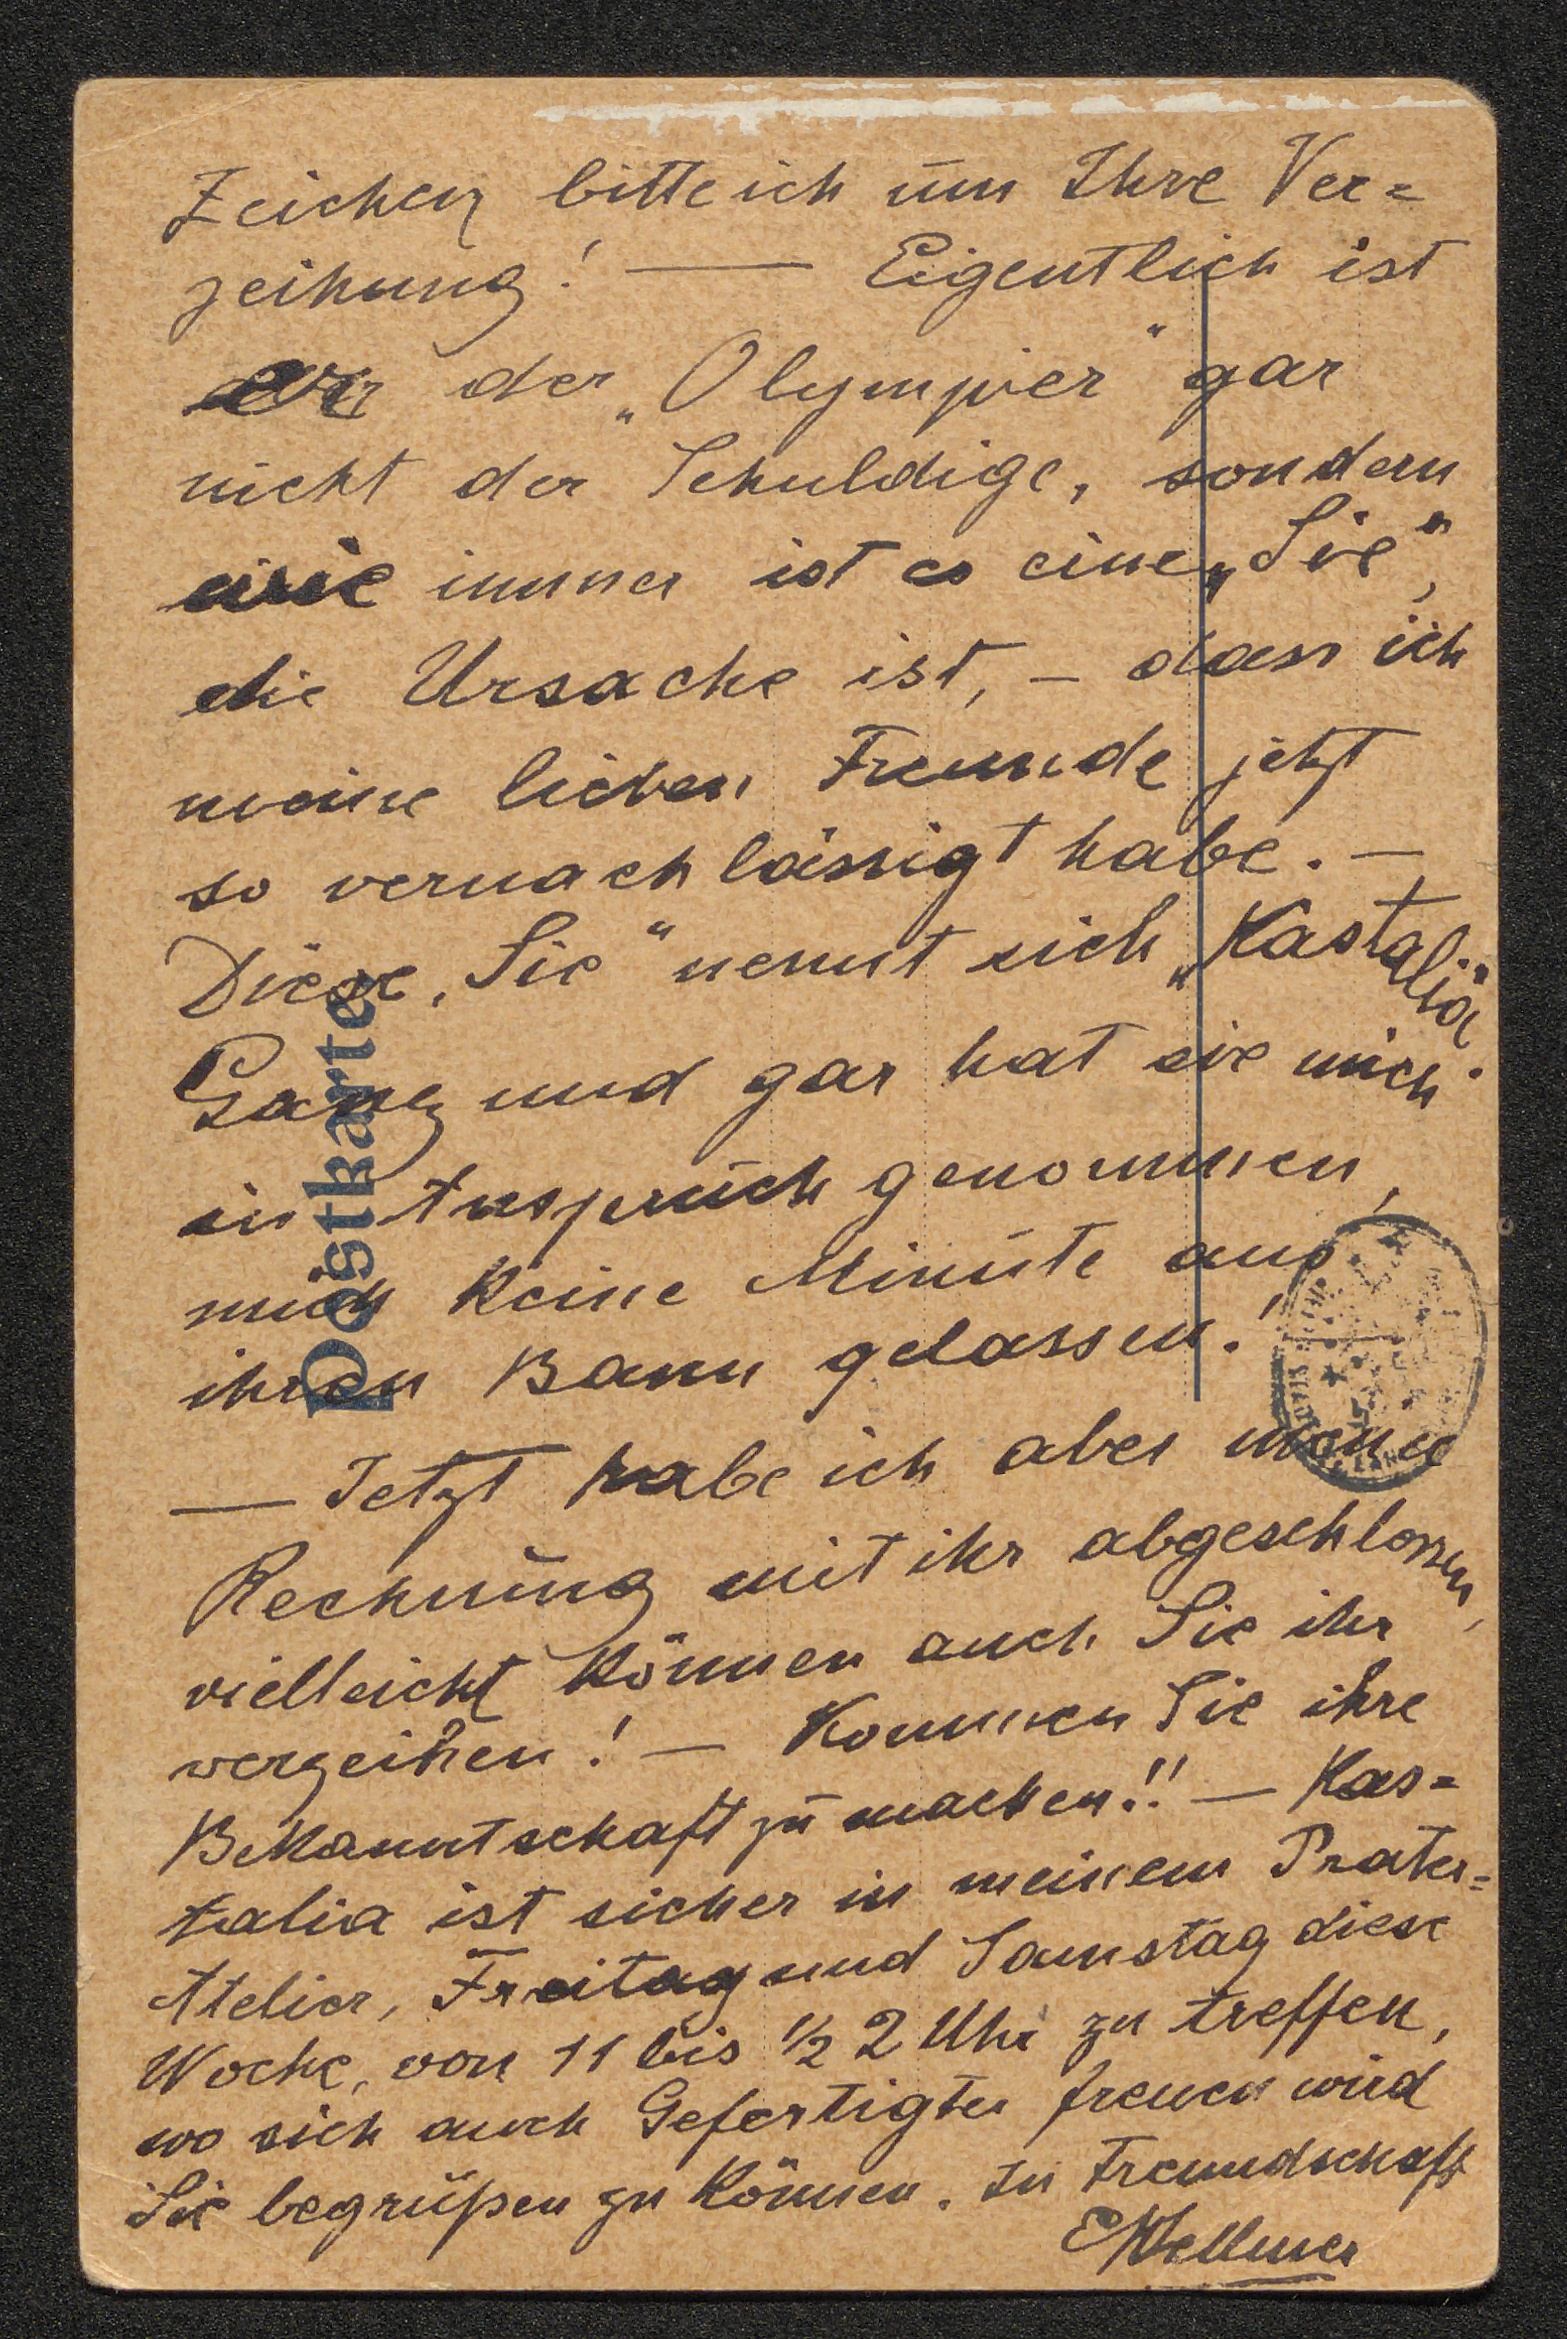 Zeichen bitte ich um Ihre Ver=
zeihung! — Eigentlich ist
er der „Olympier" gar
nicht der Schuldige, sondern
wie immer ist es eine „Sie",
die Ursache ist, – dass ich
meine lieben Freunde jetzt
so vernachlässigt habe. –
Diese „Sie" nennt sich „Kastalia".
Ganz und gar hat sie mich
in Anspruch genommen,
mich keine Minute aus
ihren Bann gelassen!
— Jetzt habe ich aber meine
Rechnung mit ihr abgeschlossen,
vielleicht können auch Sie ihr
verzeihen! – Kommen Sie ihre
Bekanntschaft zu machen!! – Kas=
talia ist sicher in meinem Prater=
Atelier, Freitag und Samstag diese
Woche, von 11 bis ½ 2 Uhr zu treffen,
wo sich auch Gefertigter freuen wird
Sie begrüßen zu können. In Freundschaft
EHellmer
Postkarte